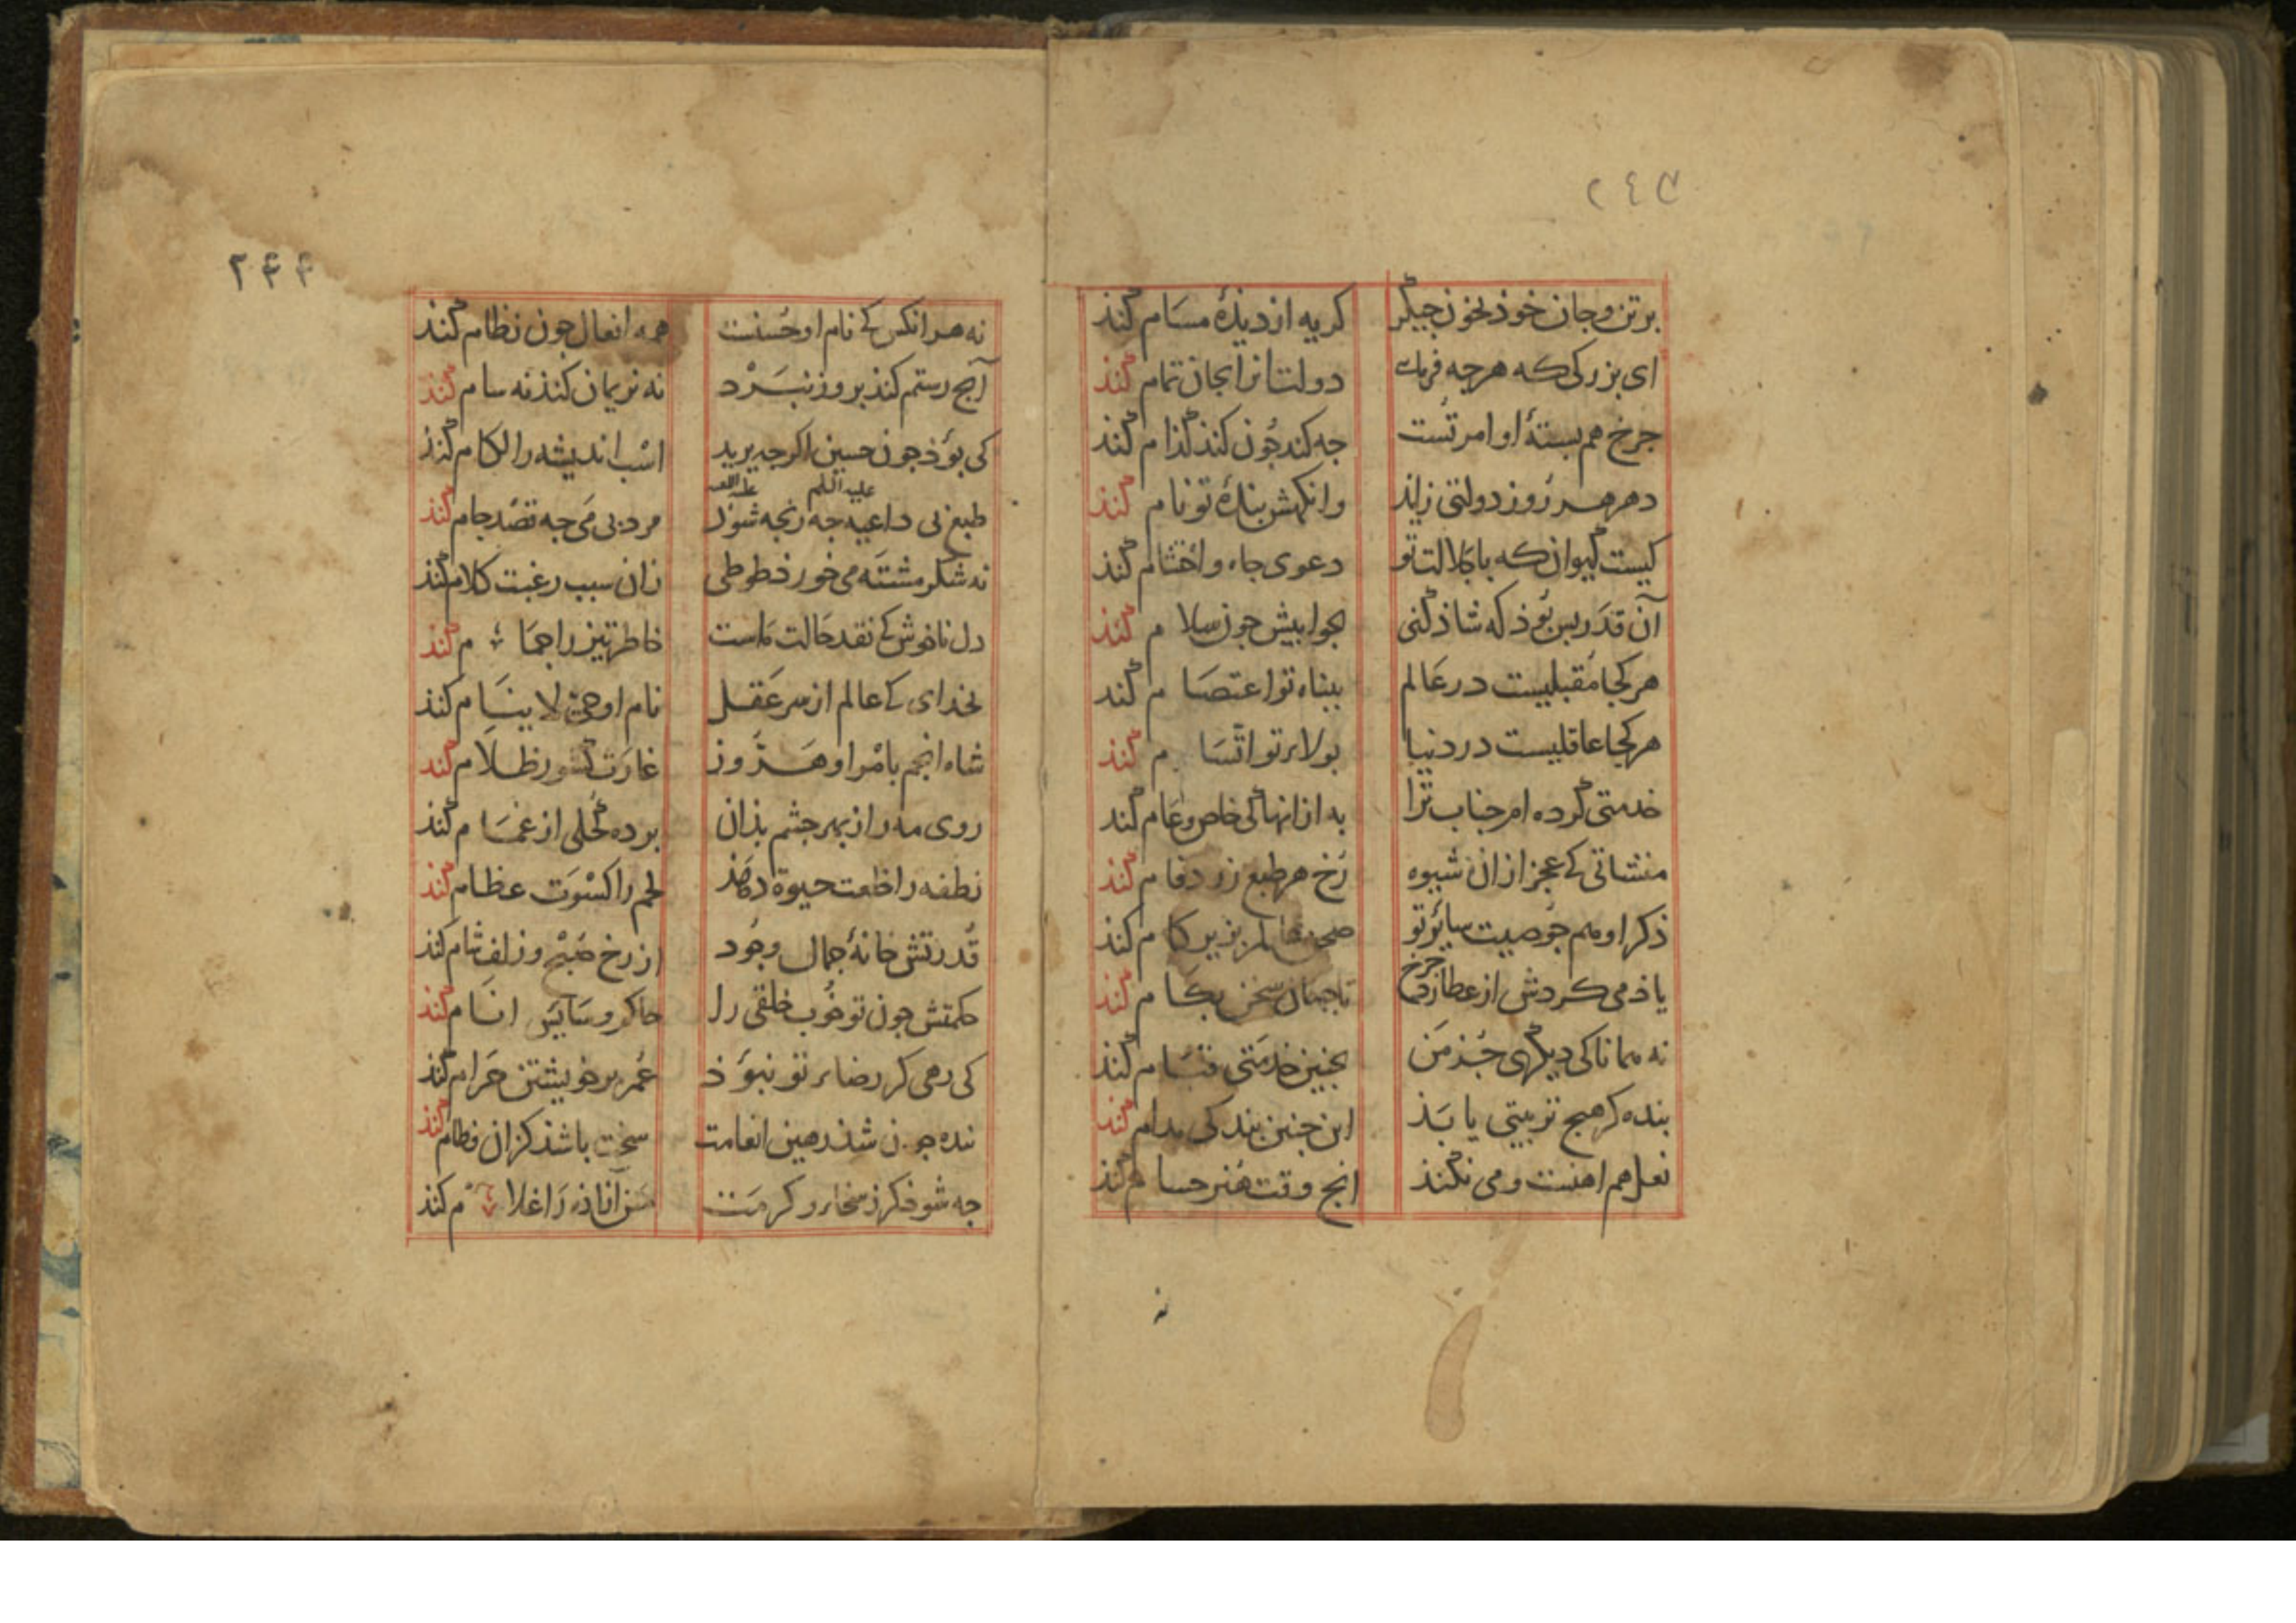 ۲٤۳
برتن و جان خوذ بخون جیگر کریه از دیذهٔ مسام کند
ای بزرکی که هرجه فرمائ دولتانرا بجان تمام کند
جرخ هم بستهٔ اوامر تست جه کند جون کند کذام کند
دهر هر روز دولتی زاید وانکهش بندهٔ تو نام کند
کیست کیوان که با جلالت تو دعوی جاه و احتشام کند
آن قدر بس بوذ که شاذ کنی بجوابیش جون سلام کند
هر کجا مقبلیست در عالم ببناه تو اعتصام کند
هر کجا عاقلیست در دنیا بولاء تو اتسام کند
خدمتی کرده ام جناب ترا به ازانها کی خاص و عام کند
منشاتی کے عجز ازان شیوه رخ هر طبع زرد فام کند
ذکر او هم جو صیت سایر تو صحن عالم بزیر کام کند
یاذ می کردش از عطارد جرخ تا جهان سخن بکام کند
نه همانا کی دیکری جز من بجنین خدمتی قیام کند
بنده کر هیج تربیتی یابذ این جنین بندکی مدام کند
نعل هم اهنست و می نکند انج وقت هنر حسام کند
۲۴۴
نه هر انکس کے نام او حسنت همه افعال جون نظام کند
آنج رستم کند بروز نبرد نه نریمان کند نه سام کند
کی بوذ جون حسین اکرجه یزید اسب اندیشه را لکام کند
علیه السلم علیه اللعنه
طبع بی داعیه جه رنجه شوذ مرد بی می جه قصد جام کند
نه شکر مشته می خورذ طوطی زان سبب رغبت کلام کند
دل ناخوش کے نقد حالت ماست خاطر تیز را جمام کند
بخدای کے عالم از سر عقل نام او حی لا ینام کند
شاه انجم بامر او هر روز غارت کشور ظلام کند
روی مه را ز بهر جشم بذان برده کحلی از غمام کند
نطفه را خلعت حیوة دهذ لحم را کسوت عظام کند
قدرتش خانهٔ جمال وجود از رخ صبح و زلف شام کند
حکمتش جون تو خوب خلقی را حاکم و سایس انام کند
کی رهی کر رضاء تو نبوذ عمر بر خویشتن حرام کند
بنده جون شذ رهین انعامت سخت باشذ کزان فطام کند
جه شوذ کر ز سخاء و کرمت آنا ذه را غلام کند